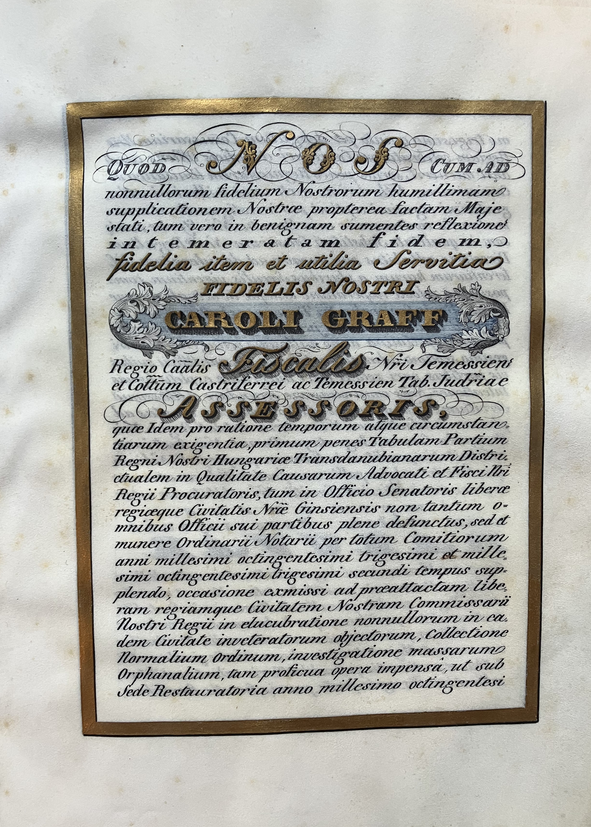 QUOD NOS CUM AD
nonnullorum fidelium Nostrorum humillimam
supplicationem Nostræ propterea factam Maje
stati, tum vero in benignam sumentes reflexione
intemeratam fidem,
fidelia item et utilia Servitia
FIDELIS NOSTRI
CAROLI GRAFF
Regio Caalis Fiscalis Nri Temessien
et Cottum Castriferrei ac Temessien Tab. Judriae
ASSESSORIS,
quæ Idem pro ratione temporum atque circumstan
tiarum exigentia, primum penes Tabulam Partium
Regni Nostri Hungariæ Transdanubianarum Distri
ctualem in Qualitate Causarum Advocati et Fisci Nri
Regii Procuratoris, tum in Officio Senatoris liberæ
regiæque Civitatis Nræ Ginsiensis non tantum o-
mnibus Officii sui partibus plene defunctus, sed et
munere Ordinarii Notarii per totum Comitiorum
anni millesimi octingentesimi trigesimi et mille,
simi octingentesimi trigesimi secundi tempus sup-
plendo, occasione exmissi ad præattactam libe,
ram regiamque Civitatem Nostram Commissarii
Nostri Regii in elucubratione nonnullorum in ea,
dem Civitate inveteratorum objectorum, Collectione
Normalium Ordinum, investigatione massarum
Orphanalium, tam proficua opera impensa, ut sub
Sede Restauratoria anno millesimo octingentesi